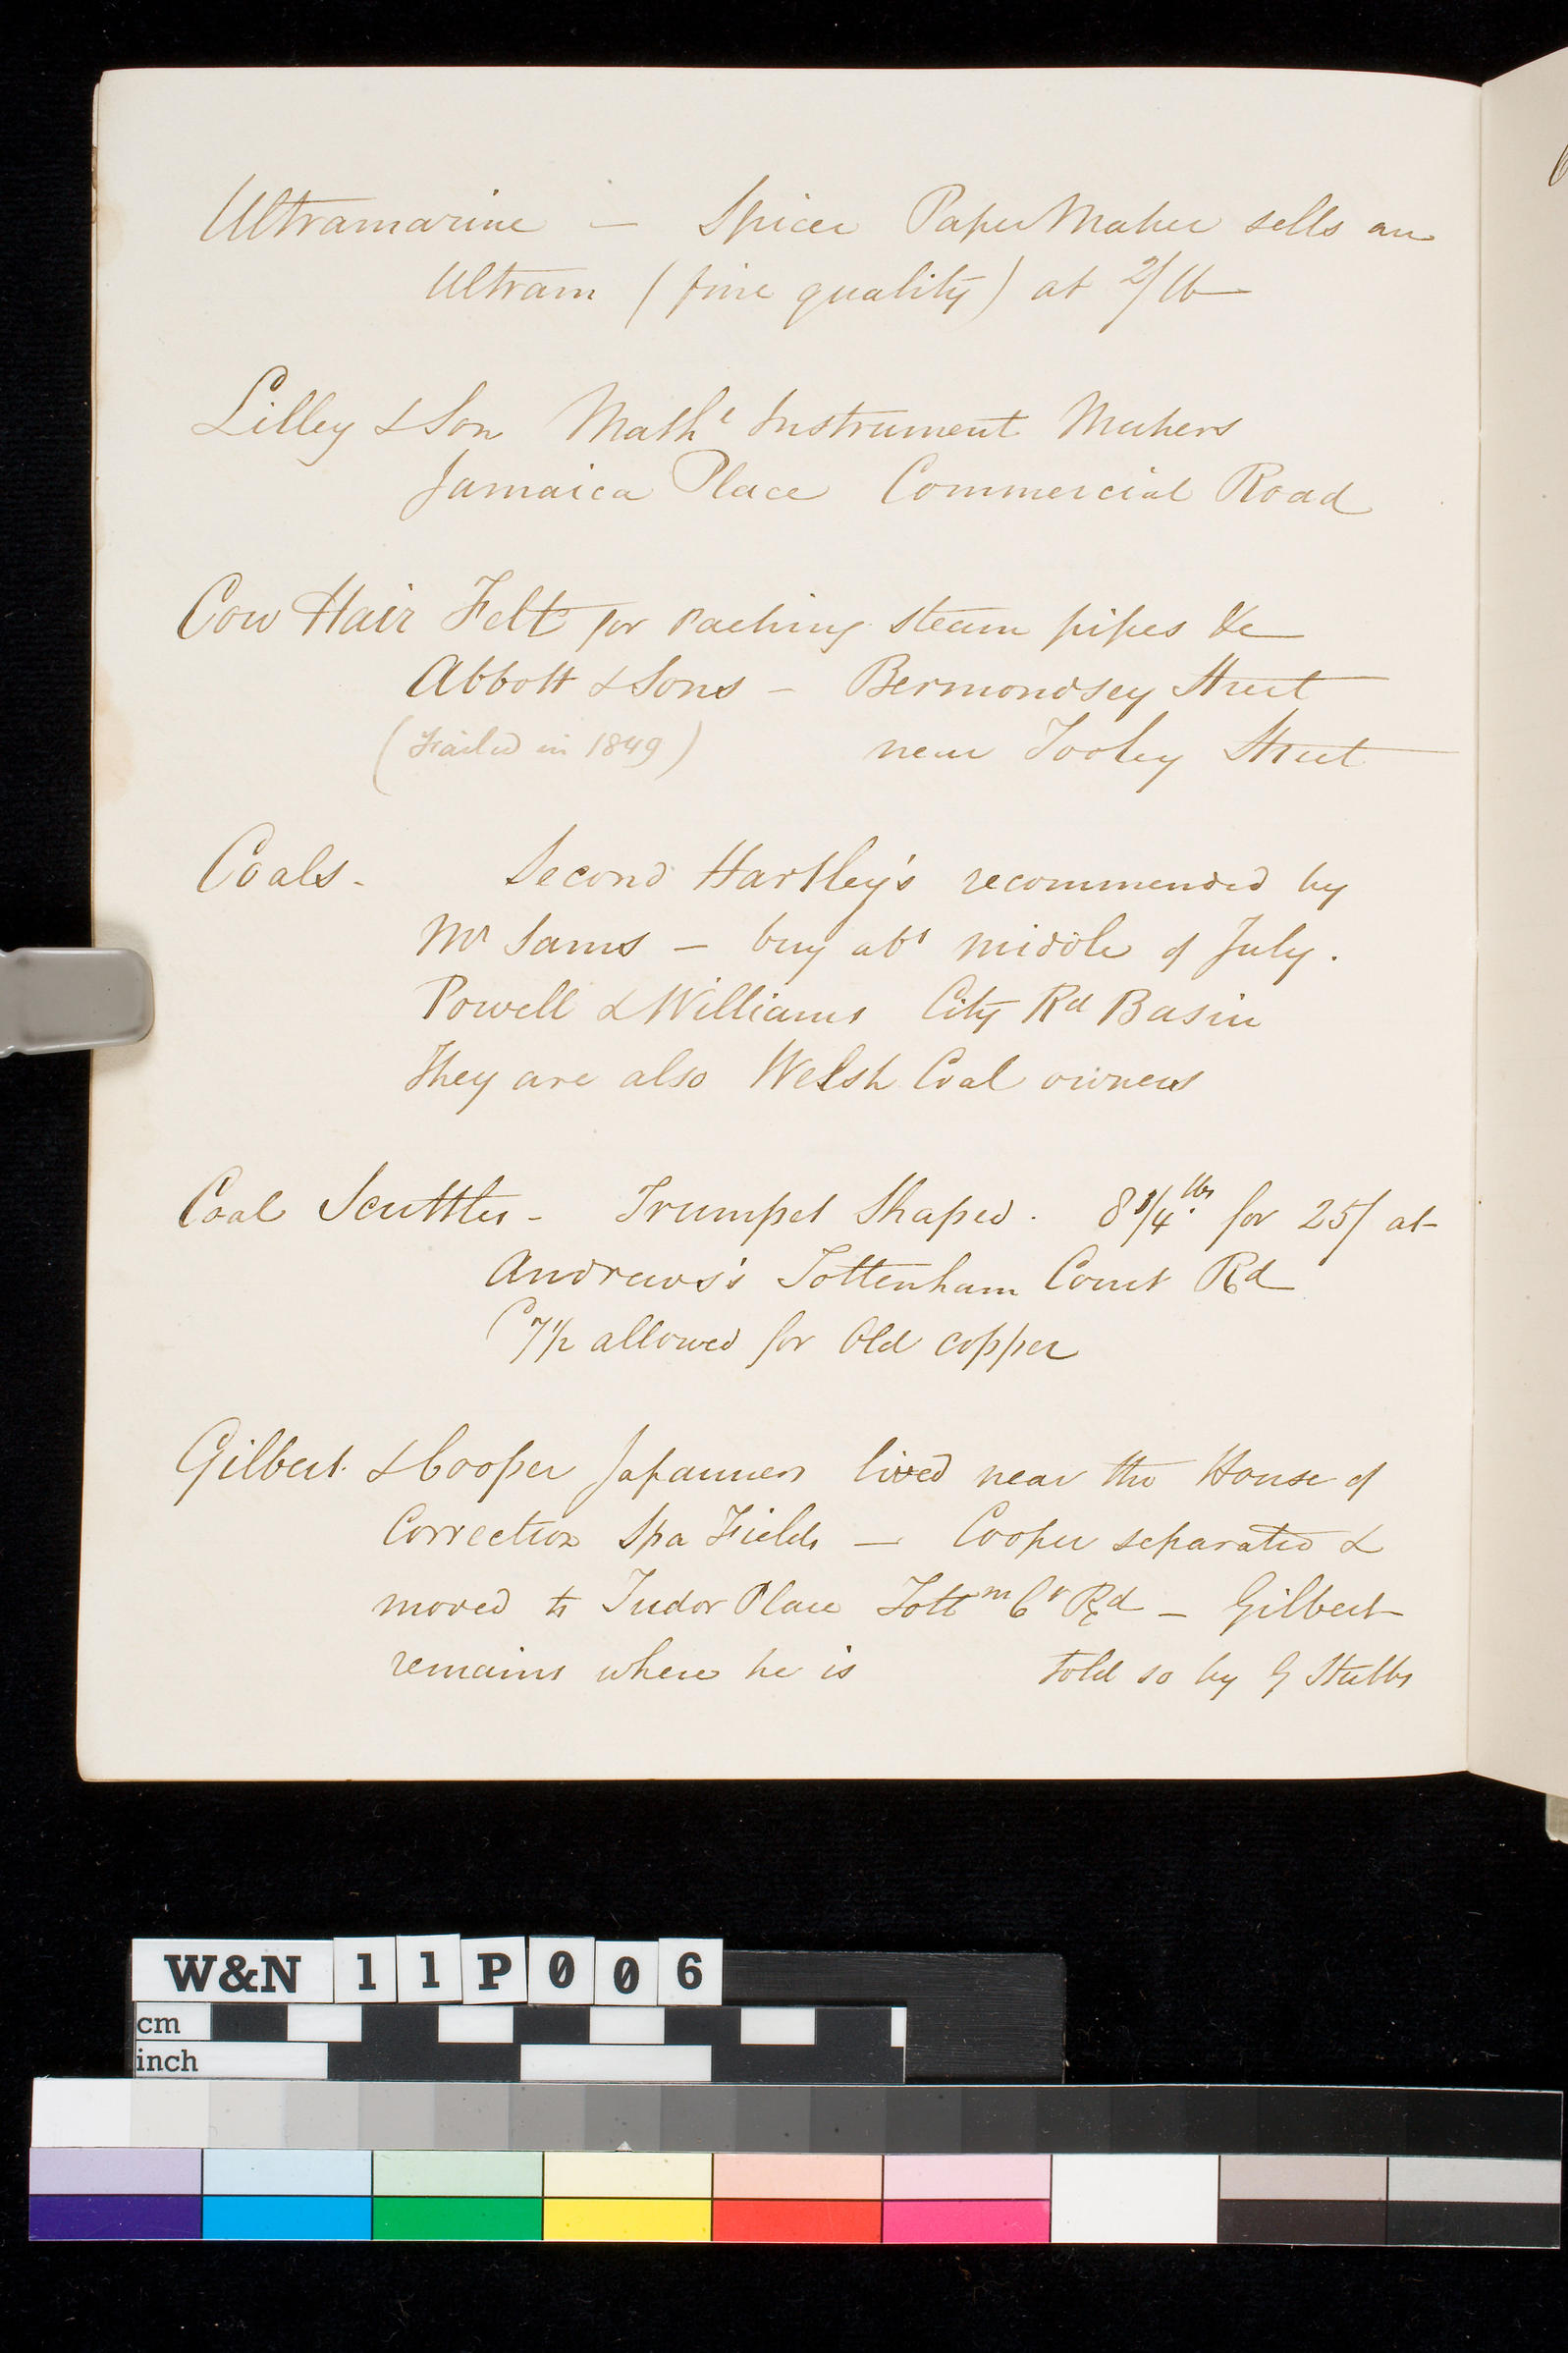 Ultramarine — Spicer Paper Maker sells an
Ultram (fine quality) at 2/ lb
Lilley & Son Mathl Instrument Makers
Jamaica Place Commercial Road
Cow Hair Felt for packing steam pipes &c
Abbott & Sons - Bermondsey Street
(Failed in 1849) near Tooley Street
Coals - Second Hartley's recommended by
Mr Sams — buy abt middle of July.
Powell & Williams City Rd Basin
They are also Welsh Coal owners
Coal Scuttles - Trumpet Shaped. 8 3/4 lbs for 25/ at
Andrews's Tottenham Court Rd
7 1/2 allowed for old copper
Gilbert & Cooper Japanners lived near the House of
Correction Spa Fields — Cooper separated &
moved to Tudor Place Tottm Ct Rd — Gilbert
remains where he is told so by G Stubbs
W&N 11P006
cm
inch